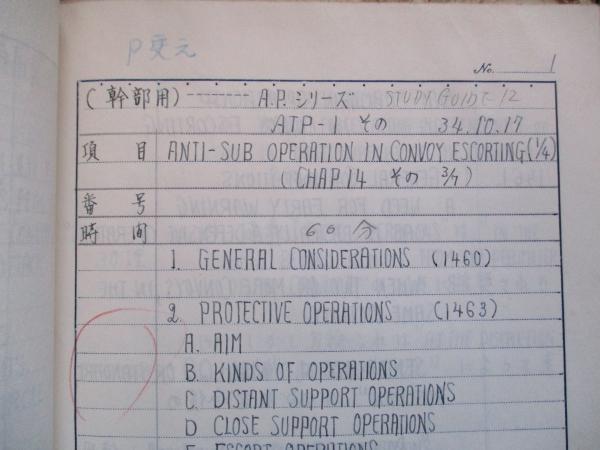 P変元
No. 1
(幹部用) A.P.シリーズ STUDY GUIDE 12
ATP-1 その 34.10.17
項目 ANTI-SUB OPERATION IN CONVOY ESCORTING (1/4)
(CHAP 14 その 3/7)
番号
時間 60分
1. GENERAL CONSIDERATIONS (1460)
2. PROTECTIVE OPERATIONS (1463)
A. AIM
B. KINDS OF OPERATIONS
C. DISTANT SUPPORT OPERATIONS
D CLOSE SUPPORT OPERATIONS
E ESCORT OPERATIONS